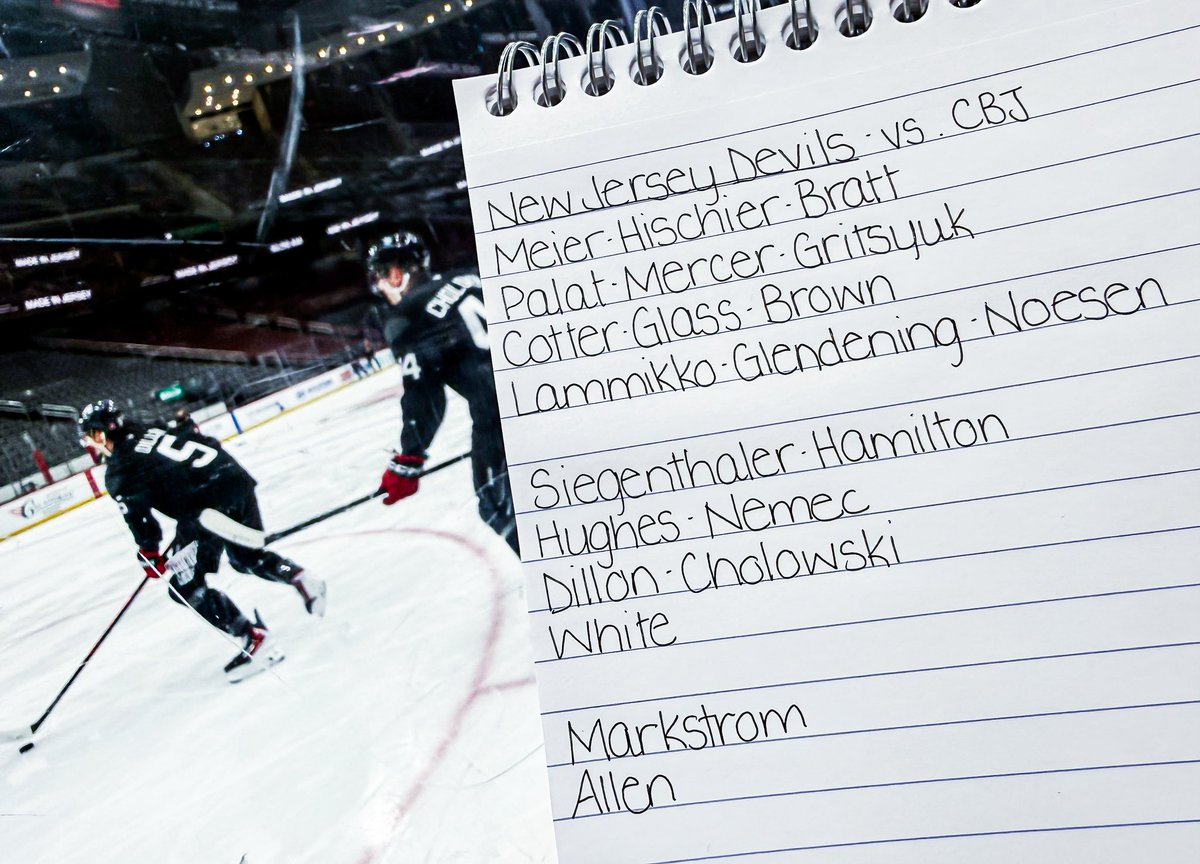 New Jersey Devils - vs. CBJ
Meier-Hischier-Bratt
Palat-Mercer-Gritsyuk
Cotter-Glass-Brown
Lammikko-Glendening-Noesen
Siegenthaler-Hamilton
Hughes-Nemec
Dillon-Cholowski
White
Markstrom
Allen
MADE IN JERSEY
MADE IN JERSEY
MADE IN JERSEY
MADE IN JERSEY
5
4